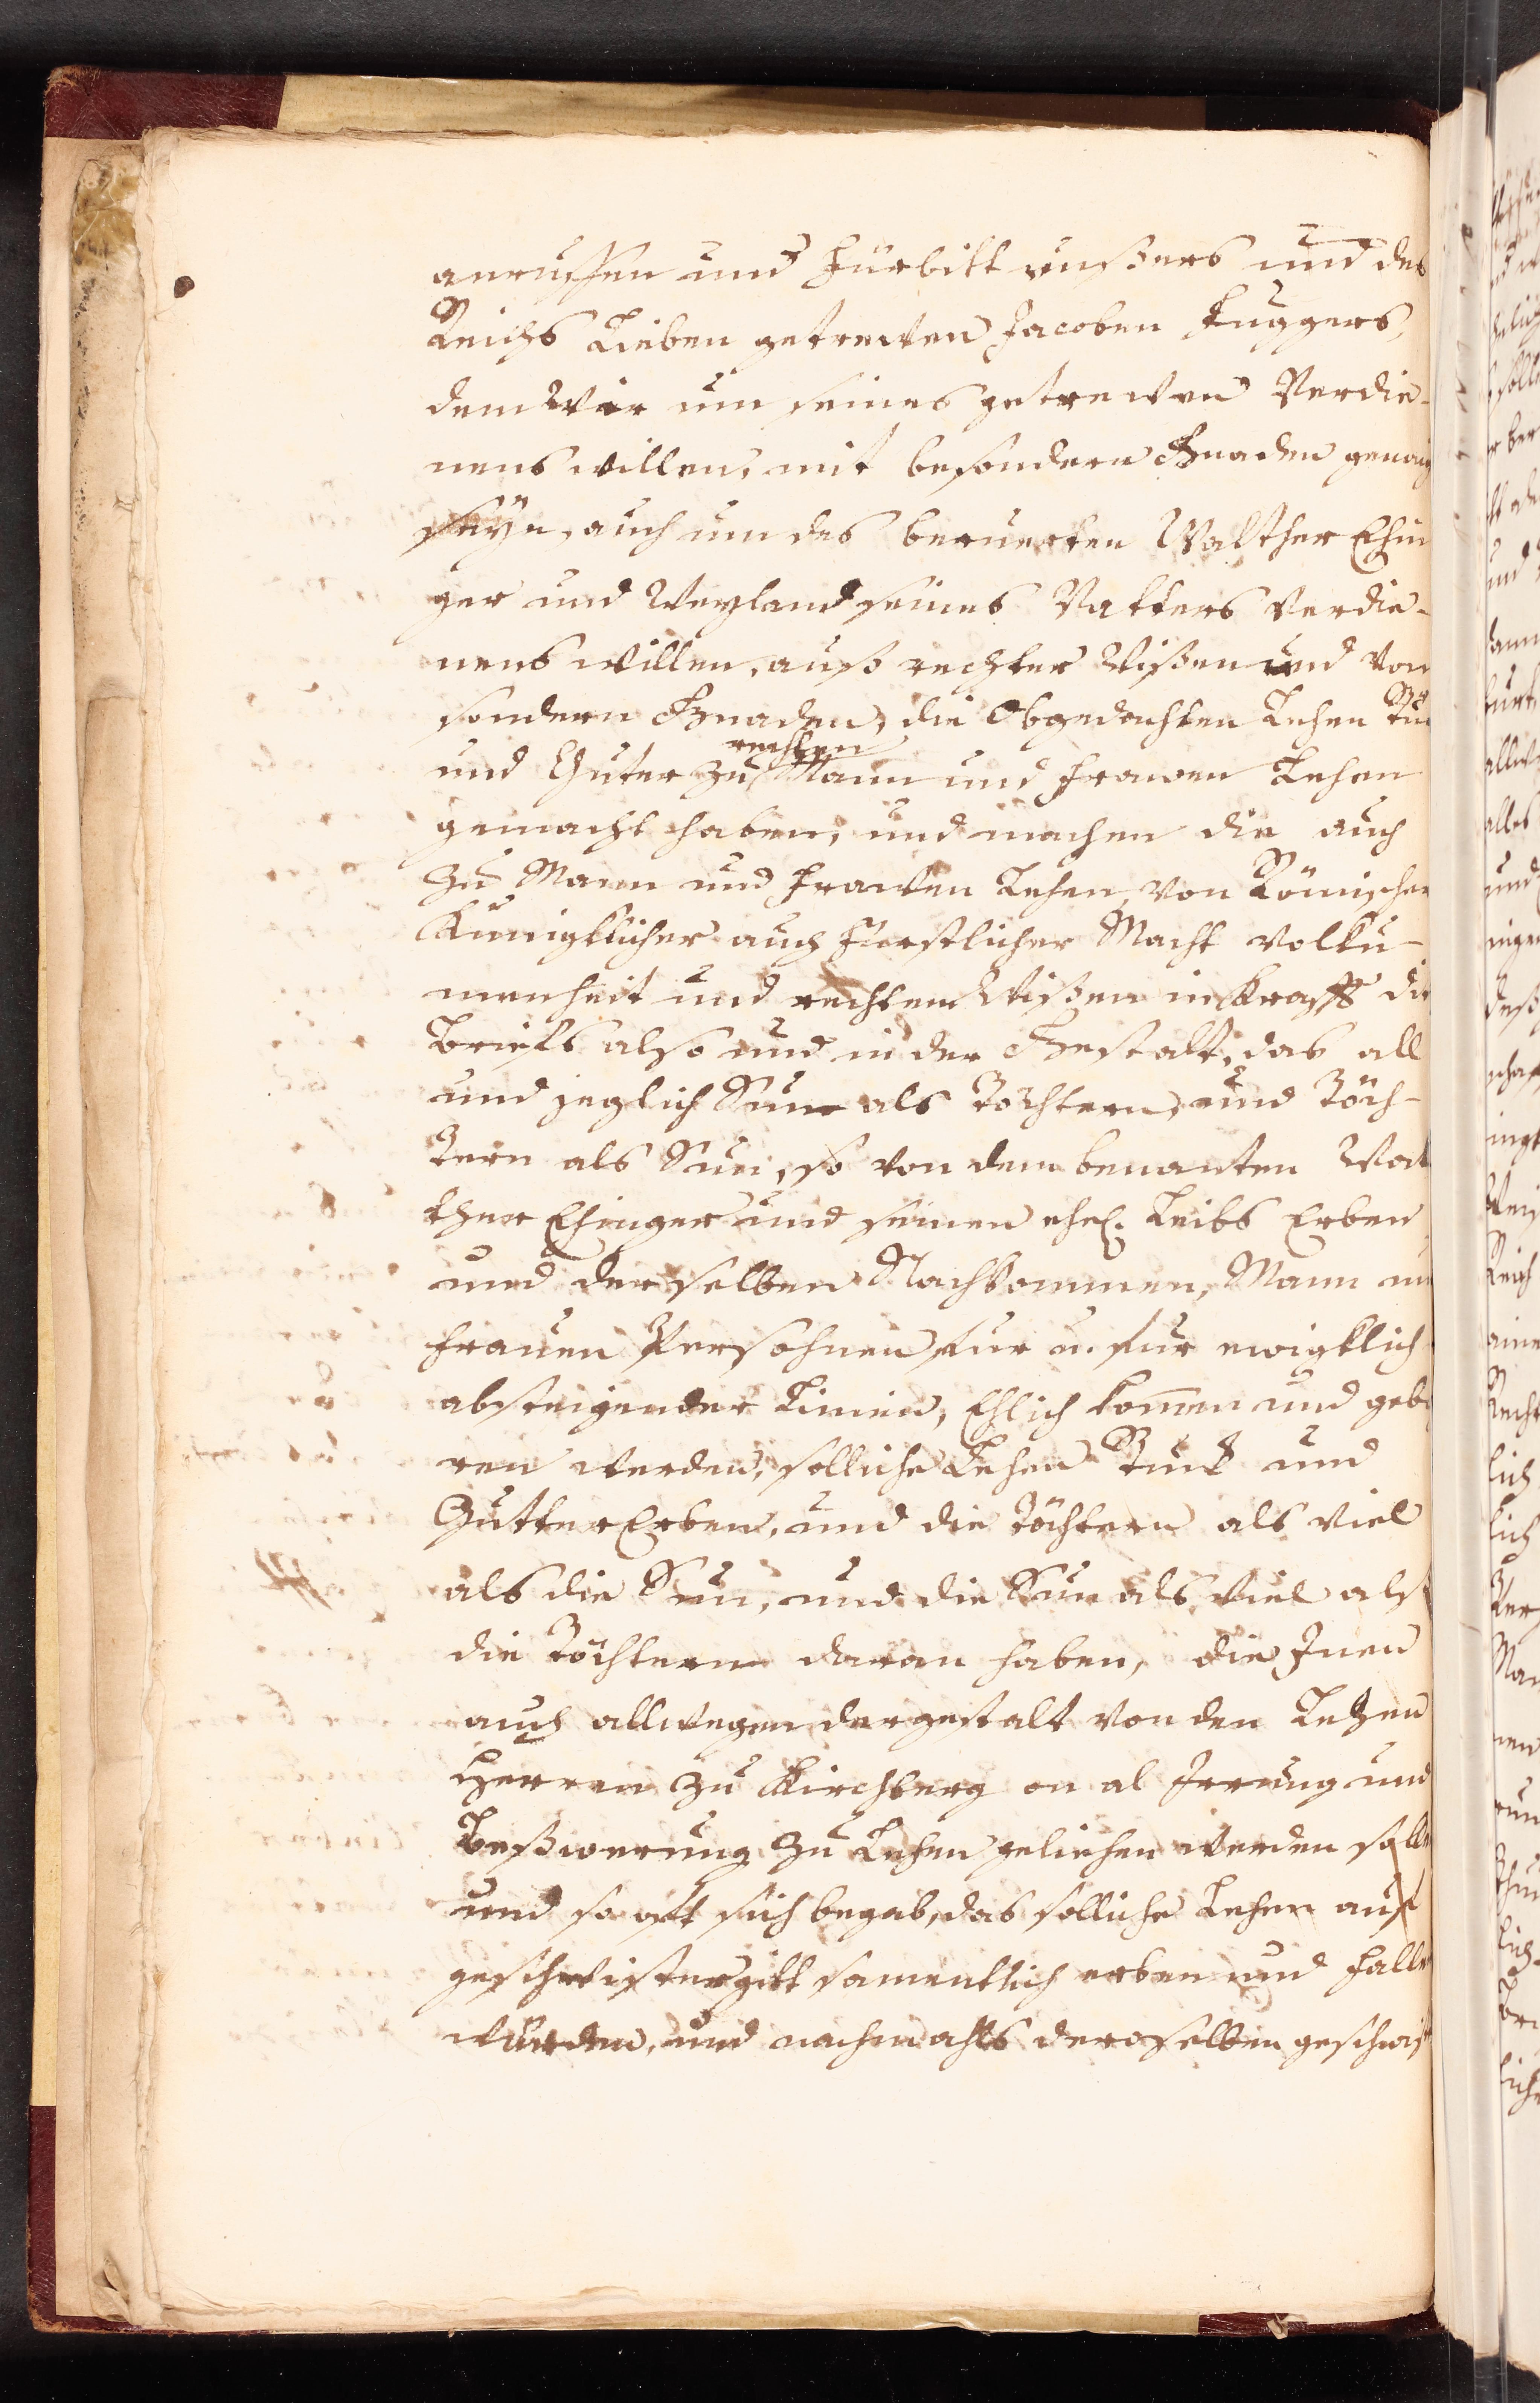 anruffen und Fürbitt unsßers und des
Reichs Lieben getrewen Jacoben Fuggers,
dem Wir um seines getrewen Verdie-
nens willen, mit besondern Gnaden genaig
seyn, auch um des beruerten Walther Ehin
ger und Weyland seines Vatters Verdie-
nens willen, auß rechter Wißen und von
sondern Gnaden, die Obgedachten Lehen Stu
und Güter zu rechten Mann und Frawen Lehen
gemacht haben, und machen die auch
zu Mann und Frawen Lehen, von Römischer
Kunigklicher auch Fürstlicher Macht volku-
menheit und rechtem Wißen in Krafft diß
Briefs also und in der Gestalt, das all
und jeglich Sun als Töchtern, und Töch-
tern als Sun, so von dem benanten Wal
ther Ehinger und seinen ehel. Leibs Erben
und derselben Nachkommen, Mann und
Frauen Persohnen fur u. fur ewigklich
absteigender Linien, Ehlich kommen und gebo
ren werden, solliche Lehen Stuck und
Gütter Erben, und die Töchtern als viel
als die Sun, und die Sun als viel als
die Töchtern daran haben, die Inen
auch allwegen dergestalt von den Lehen
Herren zu Kirchberg on al Irrung und
Beßwerung zu Lehen geliehen werden solle
und so offt sich begab, das solliche Lehen auf
geschwistergitt samentlich erben und fallen
wurden, und nachmahls deroselben geschwist